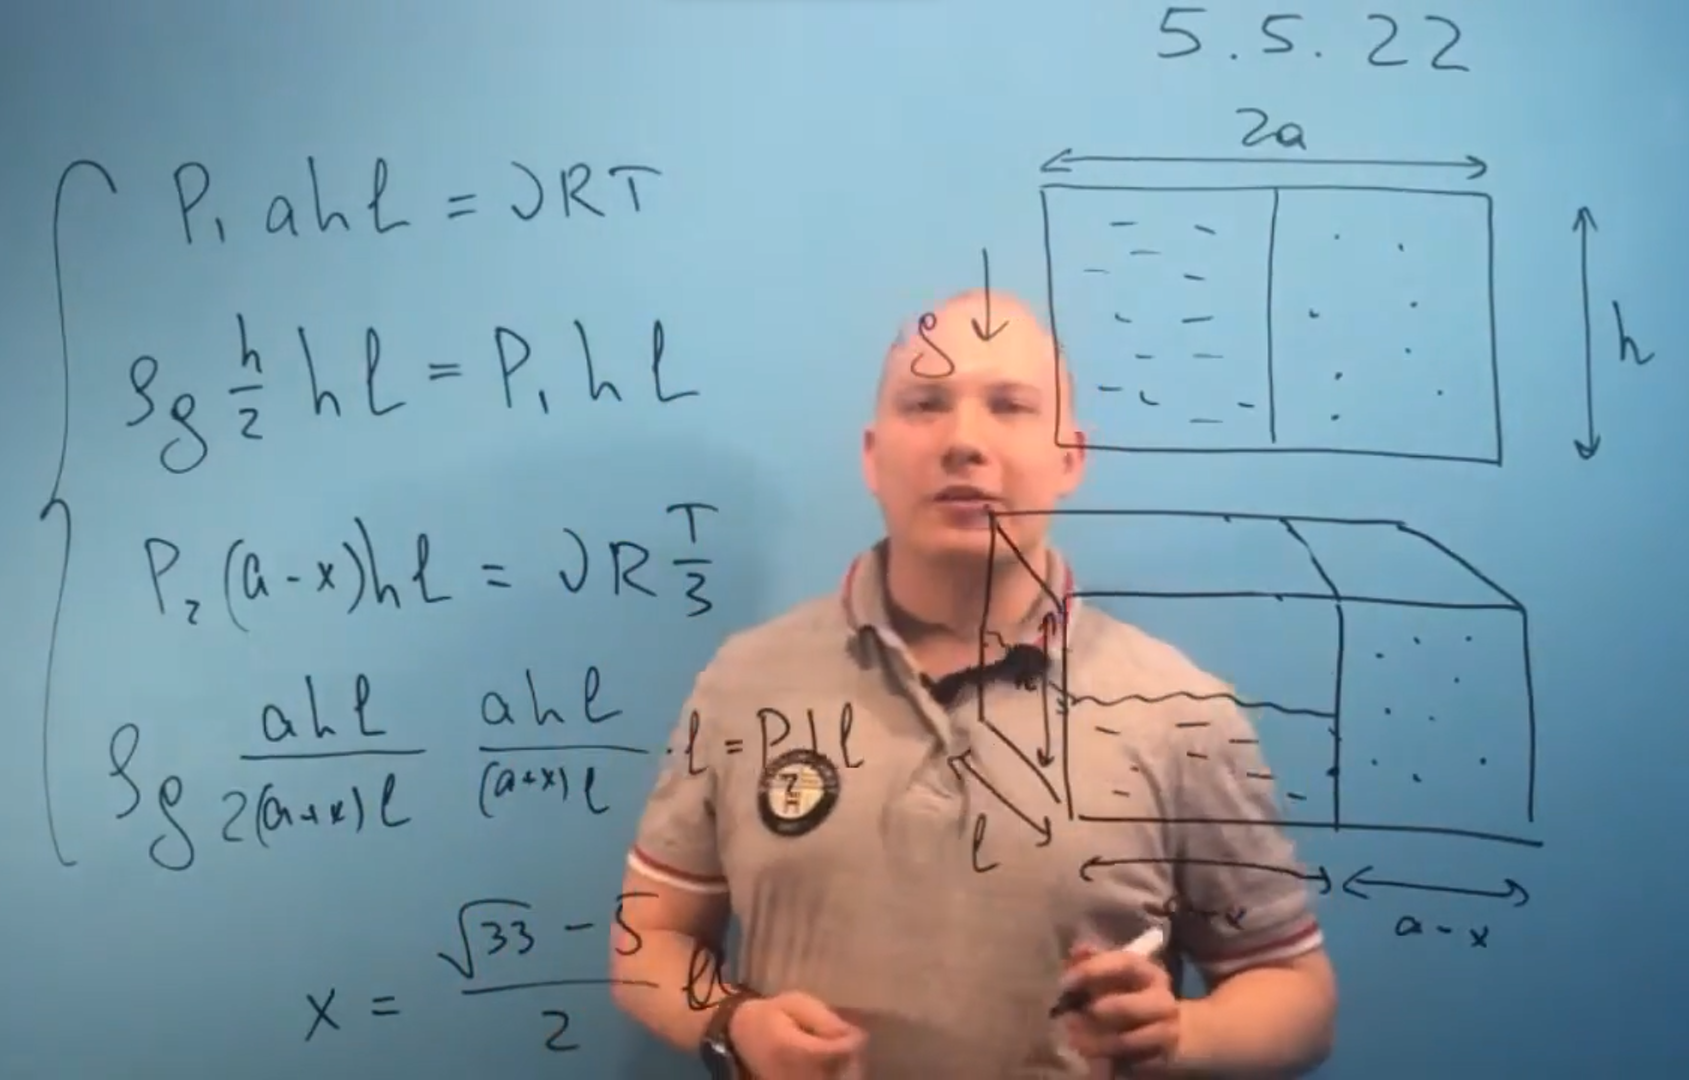 5.5.22
2a
P₁ a h l = νRT
ρg h/2 h l = P₁ h l
P₂ (a-x) h l = νR T/3
ρg ahl/(2(a+x)l) ahl/((a+x)l) · l = P h l
x = (√33 - 5)/2 a
g
h
l
x
a-x